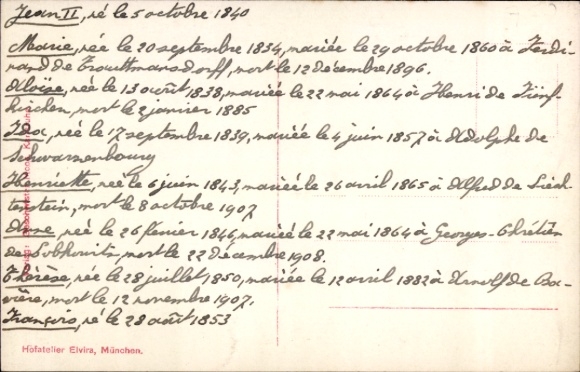 Jean II, né le 5 octobre 1840
Marie, née le 20 septembre 1834, mariée le 29 octobre 1860 à Ferdi-
nand de Trauttmansdorff, mort le 12 décembre 1896.
Aloïse, née le 13 août 1838, mariée le 22 mai 1864 à Henri de Fünf-
kirchen, mort le 2 janvier 1885
Ida, née le 17 septembre 1839, mariée le 4 juin 1857 à Adolphe de
Schwarzenbourg
Henriette, née le 6 juin 1843, mariée le 26 avril 1865 à Alfred de Liech-
tenstein, mort le 8 octobre 1907
Anne, née le 26 février 1846, mariée le 22 mai 1864 à Georges-Chrétien
de Lobkowitz, mort le 22 décembre 1908.
Thérèse, née le 28 juillet 1850, mariée le 12 avril 1882 à Arnolf de Ba-
vière, mort le 12 novembre 1907.
François, né le 28 août 1853
Hofatelier Elvira, München.